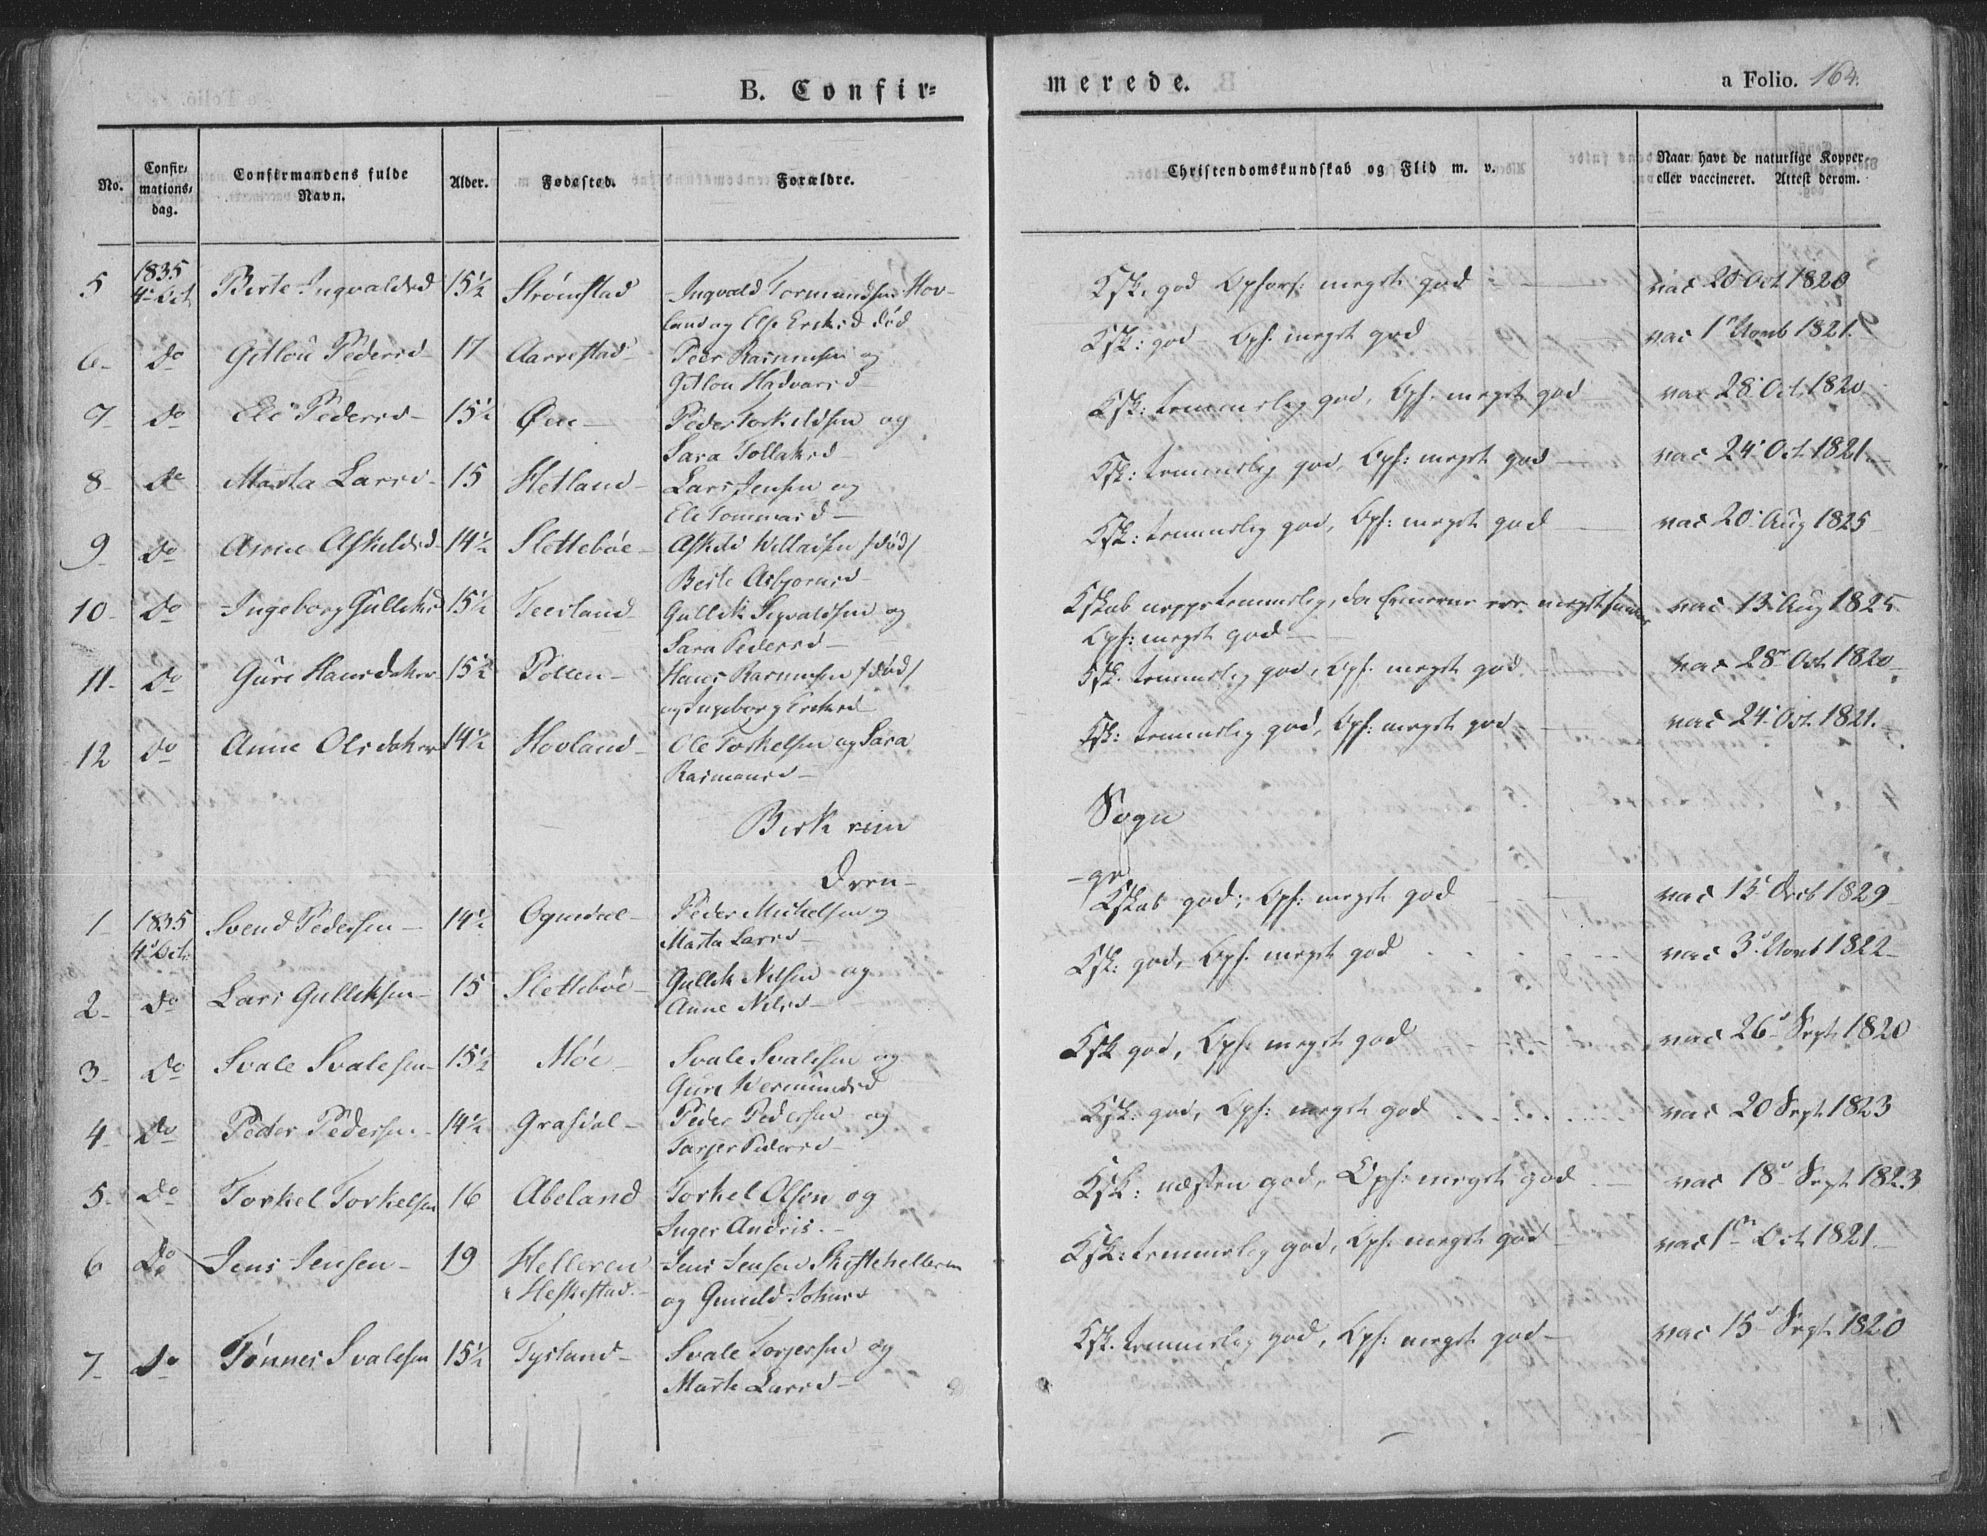 B. Confir=
merede.
a Folio. 164.
No.
Confir=
mations=
dag.
Confirmandens fulde
Navn.
Alder.
Fødested.
Forældre.
Christendomskundskab og Flid m. v.
Naar havt de naturlige Kopper
eller vaccineret. Attest derom.
5 1835 4de Oct Birte Ingvaldsd 15½ Strømstad Ingvald Tormundsen Hov-
land og Else Ersksd død
Ksk. god Opførs: meget god vac 20 Oct 1820
6- Do Gitlou Pedersd 17 Aarrestad- Peer Rasmusen og
Gitlou Hadvarsd-
Ksk: god Opf: meget god vac 1ste Novb 1821.
7- Do Ele Pedersd- 15½ Øen- Peder Torkeldsen og
Sara Tollaksd-
Ksk: temmelig god, Opf. meget god- vac 28' Oct. 1820
8- Do Marta Larsd- 15 Hetland- Lars Jensen og
Ele Tommasd-
Ksk: temmelig god, Opf: meget god- vac 24' Oct 1821.-
9- Do Anne Askeldsd- 14½ Slettebøe- Askeld Willadsen /død/
Berte Asbjornsd-
Ksk: temmelig god, Opf: meget god vac 20' Aug 1825
10- Do Ingeborg Gulliksd 15½ Teesland Gullik Sigvaldsen og
Sara Pedersd-
Kskab neppe temmelig, da Evnerne ere meget svage
Opf: meget god-
vac 13' Aug 1825
11- Do Guri Hansdaker 15½ Pollen- Hans Rasmusen /død/
og Ingeborg Ersksd-
Ksk. temmelig god, Opf. meget god- vac 28' Oct. 1820-
12 Do Anne Olsdaker 14½ Hovland- Ole Torkelsen og Sara
Rasmausd-
Ksk: temmelig god, Opf: meget god vac 24' Oct. 1821.
Birkrem Sogn
Dren-
-ge
1- 1835 4de Oct: Svend Pedersen- 14½ Ogndal- Peder Michelsen og
Marta Larsd-
Kskab god; Opf: meget god vac 13' Octb 1829-
2- Do Lars Gulliksen- 15 Slettebøe- Gullik Nilsen og
Anne Nilsd-
Ksk: god, Opf: meget god vac 3' Novb 1822-
3- Do Svale Svalesen- 15½ Møe- Svale Svalesen og
Guri Wermundsd
Ksk god, Opf: meget god vac 26de Sept. 1820
4- Do Peder Pedersen- 14½ Grafdal- Peder Pedersen og
Tarjer Pedersd-
Ksk: god, Opf: meget god vac 20 Sept. 1823
5- Do Torkel Torkelsen 16 Abeland Torkel Olsen og
Inger Andris.-
Ksk: næsten god, Opf: meget god vac 18de Sept 1823
6 Do Jens Jensen- 19 Helleren
i Heskestad- Jens Jensen Skistehelleren
og Gunild Johnsd
Ksk: temmelig god, Opf: meget god- vac 1ste Oct 1821.-
7- Do Tønnes Svalesen 15½ Tysland- Svale Torjersen og
Marte Larsd-
Ksk. temmelig god, Opf: meget god- vac 15de Sept. 1820